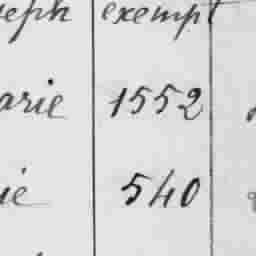 eph exempt
arie 1552
ie 540